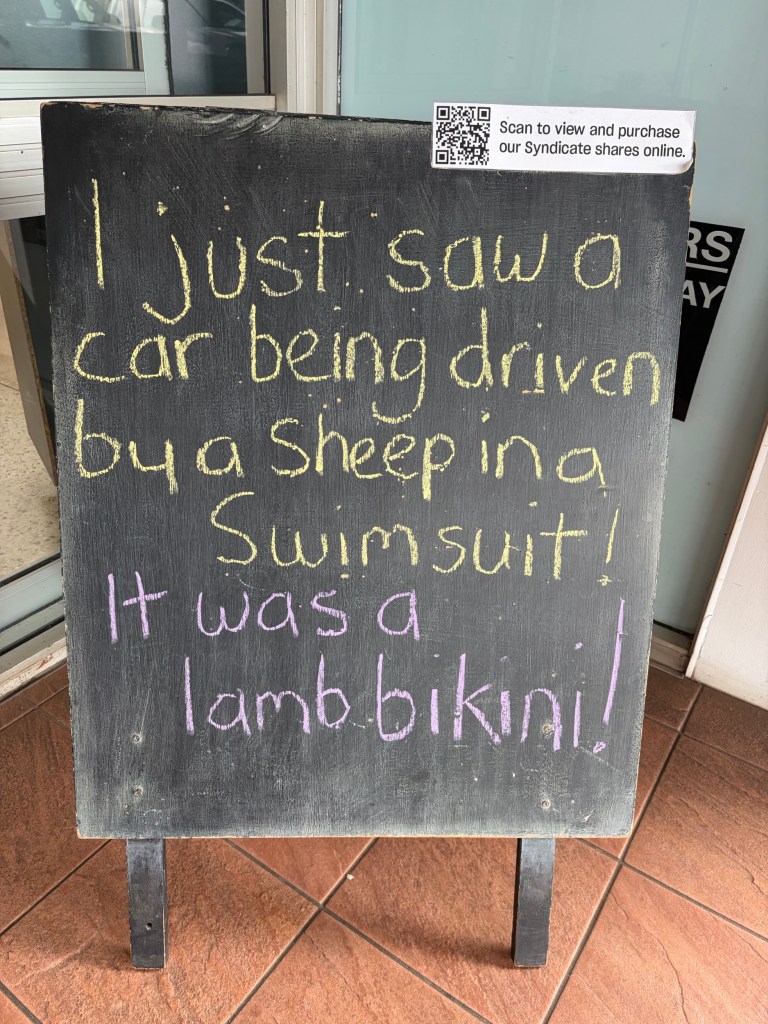 Scan to view and purchase
our Syndicate shares online.
I just saw a
car being driven
by a sheep in a
Swimsuit!
It was a
lamb bikini!
RS
AY